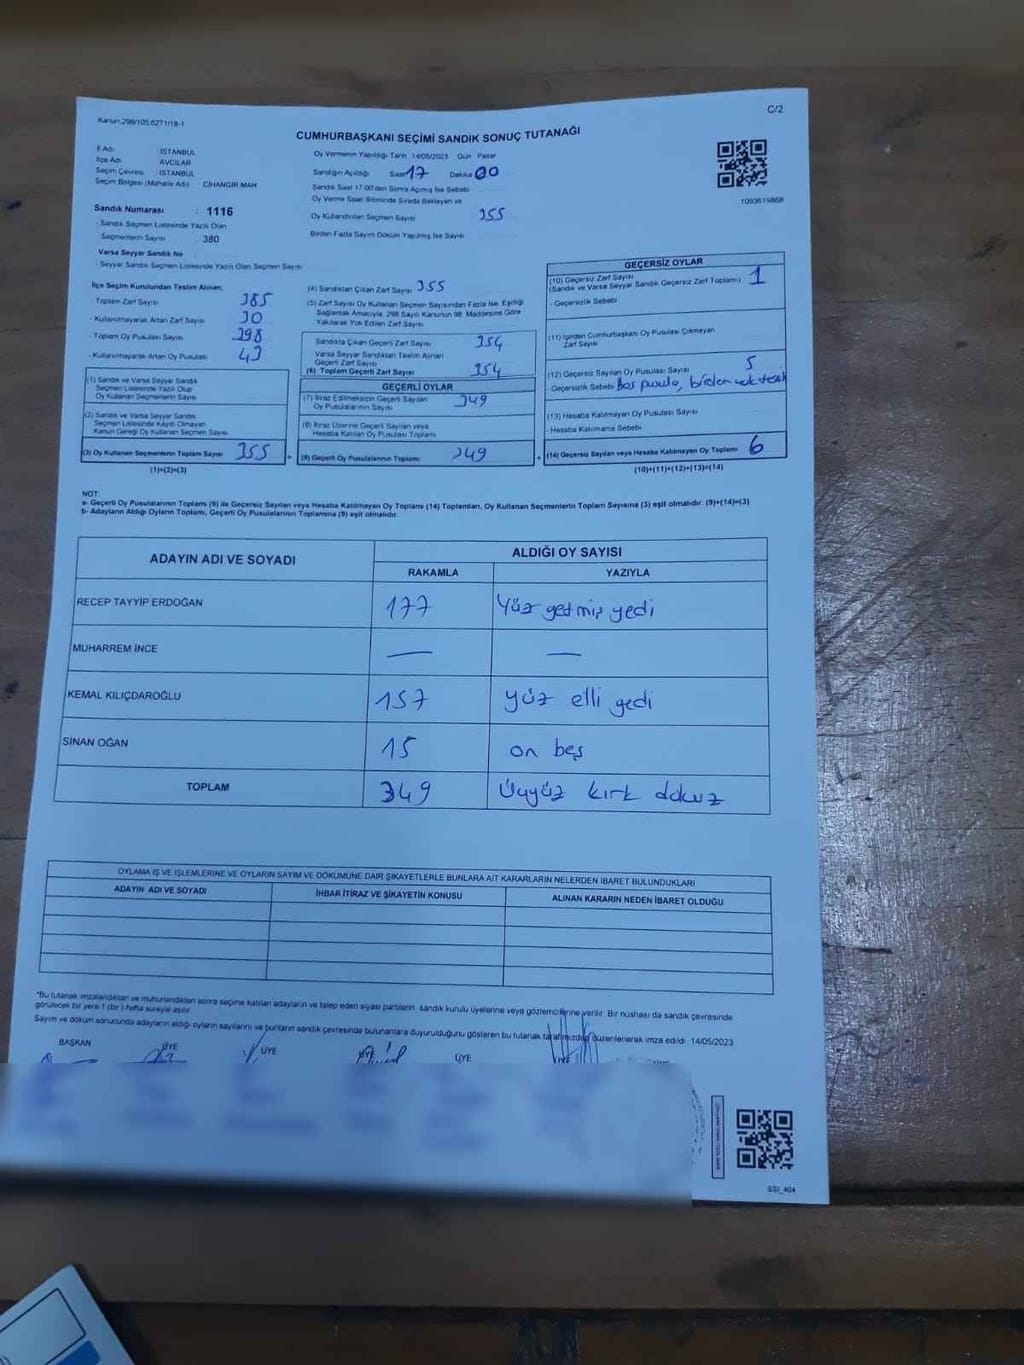 Kanun:298/105,6271/18-1
C/2
CUMHURBAŞKANI SEÇİMİ SANDIK SONUÇ TUTANAĞI
İl Adı : İSTANBUL
İlçe Adı : AVCILAR
Seçim Çevresi : İSTANBUL
Seçim Bölgesi (Mahalle Adı) : CİHANGİR MAH
Sandık Numarası : 1116
- Sandık Seçmen Listesinde Yazılı Olan
Seçmenlerin Sayısı : 380
Varsa Seyyar Sandık No
- Seyyar Sandık Seçmen Listesinde Yazılı Olan Seçmen Sayısı
Oy Vermenin Yapıldığı Tarih 14/05/2023 Gün Pazar
Sandığın Açıldığı Saat 17 Dakika 00
Sandık Saat 17:00'den Sonra Açılmış İse Sebebi
Oy Verme Saati Bitiminde Sırada Bekleyen ve
Oy Kullandırılan Seçmen Sayısı 355
Birden Fazla Sayım Döküm Yapılmış İse Sayısı
1093619868
İlçe Seçim Kurulundan Teslim Alınan:
- Toplam Zarf Sayısı 385
- Kullanılmayarak Artan Zarf Sayısı 30
- Toplam Oy Pusulası Sayısı 398
- Kullanılmayarak Artan Oy Pusulası 43
(1) Sandık ve Varsa Seyyar Sandık
Seçmen Listesinde Yazılı Olup
Oy Kullanan Seçmenlerin Sayısı
(2) Sandık ve Varsa Seyyar Sandık
Seçmen Listesinde Kaydı Olmayan
Kanun Gereği Oy Kullanan Seçmen Sayısı
(3) Oy Kullanan Seçmenlerin Toplam Sayısı 355
(1)+(2)=(3)
(4) Sandıktan Çıkan Zarf Sayısı 355
(5) Zarf Sayısı Oy Kullanan Seçmen Sayısından Fazla İse, Eşitliği
Sağlamak Amacıyla, 298 Sayılı Kanunun 98. Maddesine Göre
Yakılarak Yok Edilen Zarf Sayısı
Sandıkta Çıkan Geçerli Zarf Sayısı 354
Varsa Seyyar Sandıktan Teslim Alınan
Geçerli Zarf Sayısı
(6) Toplam Geçerli Zarf Sayısı 354
GEÇERLİ OYLAR
(7) İtiraz Edilmeksizin Geçerli Sayılan
Oy Pusulalarının Sayısı 349
(8) İtiraz Üzerine Geçerli Sayılan veya
Hesaba Katılan Oy Pusulası Toplamı
(9) Geçerli Oy Pusulalarının Toplamı 349
GEÇERSİZ OYLAR
(10) Geçersiz Zarf Sayısı
(Sandık ve Varsa Seyyar Sandık Geçersiz Zarf Toplamı) 1
- Geçersizlik Sebebi
(11) İçinden Cumhurbaşkanı Oy Pusulası Çıkmayan
Zarf Sayısı
(12) Geçersiz Sayılan Oy Pusulası Sayısı 5
- Geçersizlik Sebebi Boş pusula, birden
(13) Hesaba Katılmayan Oy Pusulası Sayısı
- Hesaba Katılmama Sebebi
(14) Geçersiz Sayılan veya Hesaba Katılmayan Oy Toplamı 6
(10)+(11)+(12)+(13)=(14)
NOT:
a- Geçerli Oy Pusulalarının Toplamı (9) ile Geçersiz Sayılan veya Hesaba Katılmayan Oy Toplamı (14) Toplamları, Oy Kullanan Seçmenlerin Toplam Sayısına (3) eşit olmalıdır. (9)+(14)=(3)
b- Adayların Aldığı Oyların Toplamı, Geçerli Oy Pusulalarının Toplamına (9) eşit olmalıdır.
ADAYIN ADI VE SOYADI
ALDIĞI OY SAYISI
RAKAMLA YAZIYLA
RECEP TAYYİP ERDOĞAN 177 Yüz yetmiş yedi
MUHARREM İNCE — —
KEMAL KILIÇDAROĞLU 157 yüz elli yedi
SİNAN OĞAN 15 on beş
TOPLAM 349 Üçyüz kırk dokuz
OYLAMA İŞ VE İŞLEMLERİNE VE OYLARIN SAYIM VE DÖKÜMÜNE DAİR ŞİKAYETLERLE BUNLARA AİT KARARLARIN NELERDEN İBARET BULUNDUKLARI
ADAYIN ADI VE SOYADI İHBAR İTİRAZ VE ŞİKAYETİN KONUSU ALINAN KARARIN NEDEN İBARET OLDUĞU
*Bu tutanak imzalandıktan ve mühürlendikten sonra seçime katılan adayların ve talep eden siyasi partilerin sandık kurulu üyelerine veya gözlemcilerine verilir. Bir nüshası da sandık çevresinde
görülecek bir yere 1 (bir) hafta süreyle asılır.
Sayım ve döküm sonucunda adayların aldığı oyların sayılarını ve bunların sandık çevresinde bulunanlara duyurulduğunu gösteren bu tutanak tarafımızdan düzenlenerek imza edildi. 14/05/2023
BAŞKAN ÜYE ÜYE ÜYE ÜYE ÜYE
SSI_404